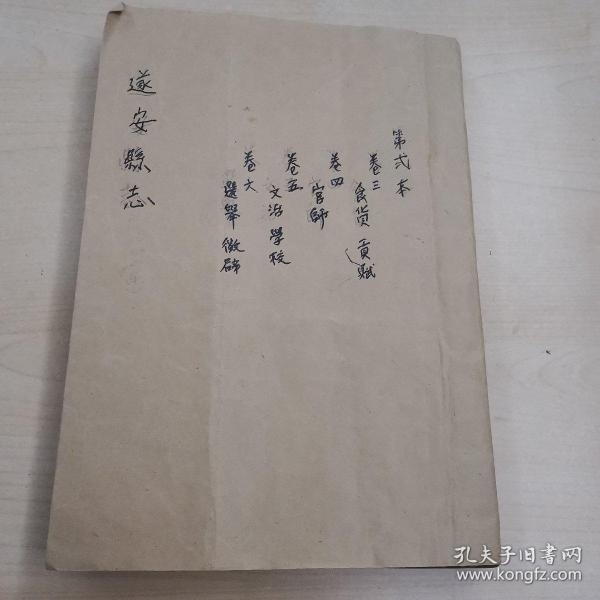 第弍本
卷三
食货 貢赋
卷四
官師
卷五
文治 學校
卷六
選舉 徵辟
遂安縣志
孔夫子旧书网
www.kongfz.com